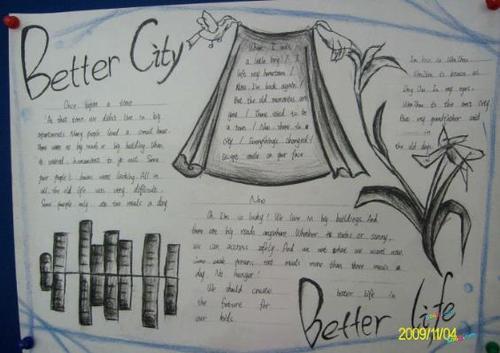 Better City
When I was
a little boy / I
left my hometown /
Now I'm back again /
But the old memories are
gone / There used to be
a town / Now there is a
city / Everything's changed /
except smile on your face
Once upon a time
At that time we didn't live in big
apartments. Many people lived a small house.
There were no big roads or big building. When
it rained, inconvenient to go out. Some
poor people's houses were leaking. All in
all, the old life was very difficult.
Some people only ate two meals a day
In my eyes,
is the best city
that my grandfather said
in
the old days
Now
Oh I'm so lucky! We live in big buildings. And
there are big roads anywhere. Whether it rains or sunny,
we can access safely. And we eat what we want now,
some people eat meals more than three meals a
day. No hunger!
We should create better life in
the future for
our kids.
Better life
2009/11/04